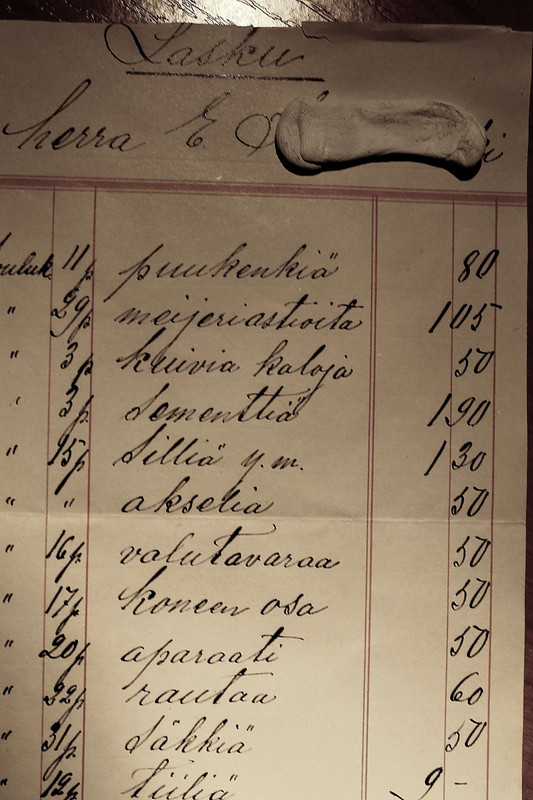 Lasku
herra E
11 p puukenkiä 80
" 29 p meijeriastioita 105
" 3 p kuivia kaloja 50
" 3 p Sementtiä 190
" 15 p Silliä y.m. 130
" " akselia 50
" 16 p. valutavaraa 50
" 17 p. koneen osa 50
" 20 p. aparaati 50
" 22 p. rautaa 60
" 31 p. Säkkiä 50
" 12 p. Tiiliä 9 -